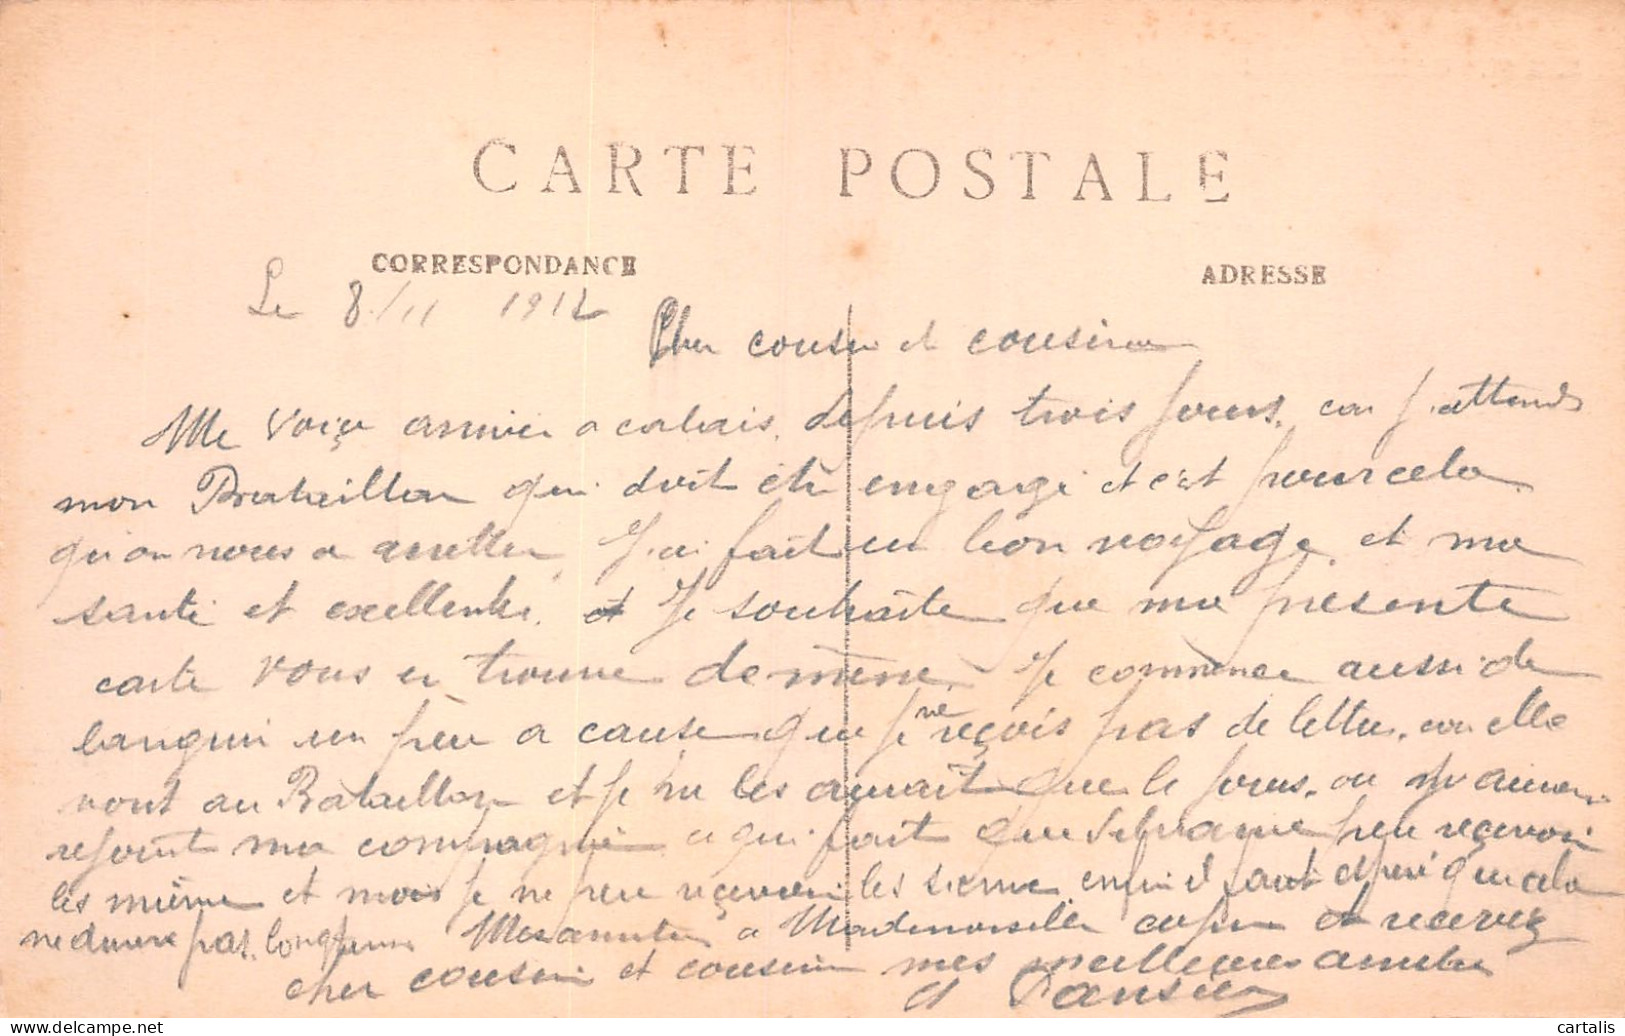 CARTE POSTALE
CORRESPONDANCE
ADRESSE
Le 8/11 1912
Cher cousin et cousine
Me voiça arriver a calais. depuis trois jours. car j'attends
mon Bataillon qui doit etre engagé et c'est pour cela
qu'on nous a arretter. J'ai fait un bon voyage. et ma
santé et excellente. et Je souhaite que ma présente
carte vous en trouve de mème. Je commence aussi de
languir un peu a cause que je ne reçois pas de lettre. car elle
vont au Bataillon et je ne les aurait que le jour. ou je aurai
rejoint ma compagnie ce qui fait que peu recevoir
les mième et mois je ne peu recevoir les sienne enfin il faut esperé que cela
ne durera pas. longtemp Mes amitiés a Mademoiselle et recevez
cher cousin et cousine mes meilleures amitiés